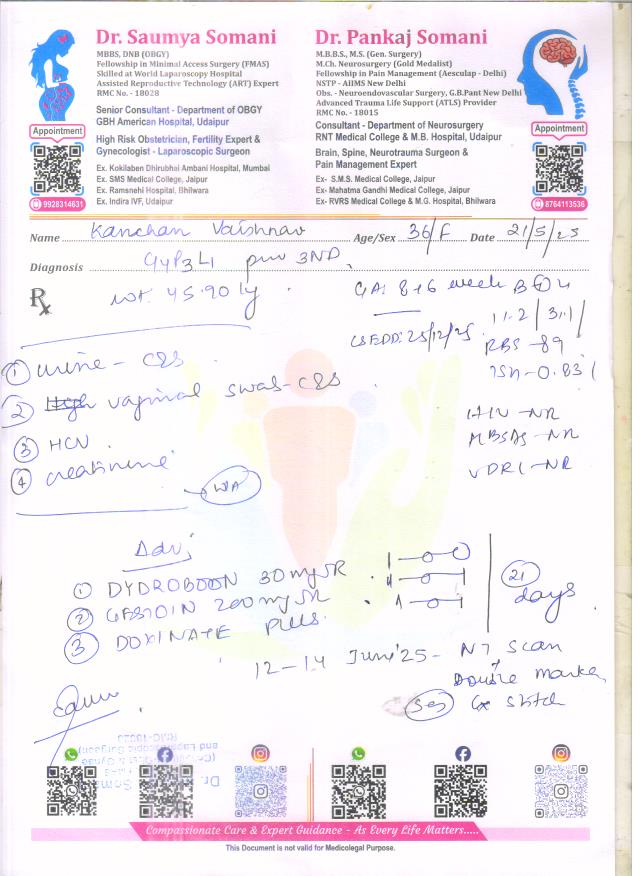 Dr. Saumya Somani
MBBS, DNB (OBGY)
Fellowship in Minimal Access Surgery (FMAS)
Skilled at World Laparoscopy Hospital
Assisted Reproductive Technology (ART) Expert
RMC No. - 18028
Senior Consultant - Department of OBGY
GBH American Hospital, Udaipur
High Risk Obstetrician, Fertility Expert &
Gynecologist - Laparoscopic Surgeon
Ex. Kokilaben Dhirubhai Ambani Hospital, Mumbai
Ex. SMS Medical College, Jaipur
Ex. Ramsnehi Hospital, Bhilwara
Ex. Indira IVF, Udaipur
Appointment
9928314631
Dr. Pankaj Somani
M.B.B.S., M.S. (Gen. Surgery)
M.Ch. Neurosurgery (Gold Medalist)
Fellowship in Pain Management (Aesculap - Delhi)
NSTP - AIIMS New Delhi
Obs. - Neuroendovascular Surgery, G.B.Pant New Delhi
Advanced Trauma Life Support (ATLS) Provider
RMC No. - 18015
Consultant - Department of Neurosurgery
RNT Medical College & M.B. Hospital, Udaipur
Brain, Spine, Neurotrauma Surgeon &
Pain Management Expert
Ex- S.M.S. Medical College, Jaipur
Ex- Mahatma Gandhi Medical College, Jaipur
Ex- RVRS Medical College & M.G. Hospital, Bhilwara
Appointment
8764113536
Name Kanchan Vaishnav Age/Sex 36/F Date 21/5/25
Diagnosis G4P3L1 prev 3ND
Rx wt. 45.90 kg GA: 8+6 week B
11.2 / 3.1
EDD: 25/12/25 RBS - 89
TSH - 0.83
① urine - C&S
② vaginal swab - C&S
③ HCV
④ creatinine
HIV - NR
HBSAg - NR
VDRL - NR
Adv,
① DYDROBOON 30mg SR
② GESTOIN 200mg SR
③ DOXINATE PLUS
21 days
12-14 June'25 - NT scan
Double marker
Cx stitch
Compassionate Care & Expert Guidance - As Every Life Matters.....
This Document is not valid for Medicolegal Purpose.